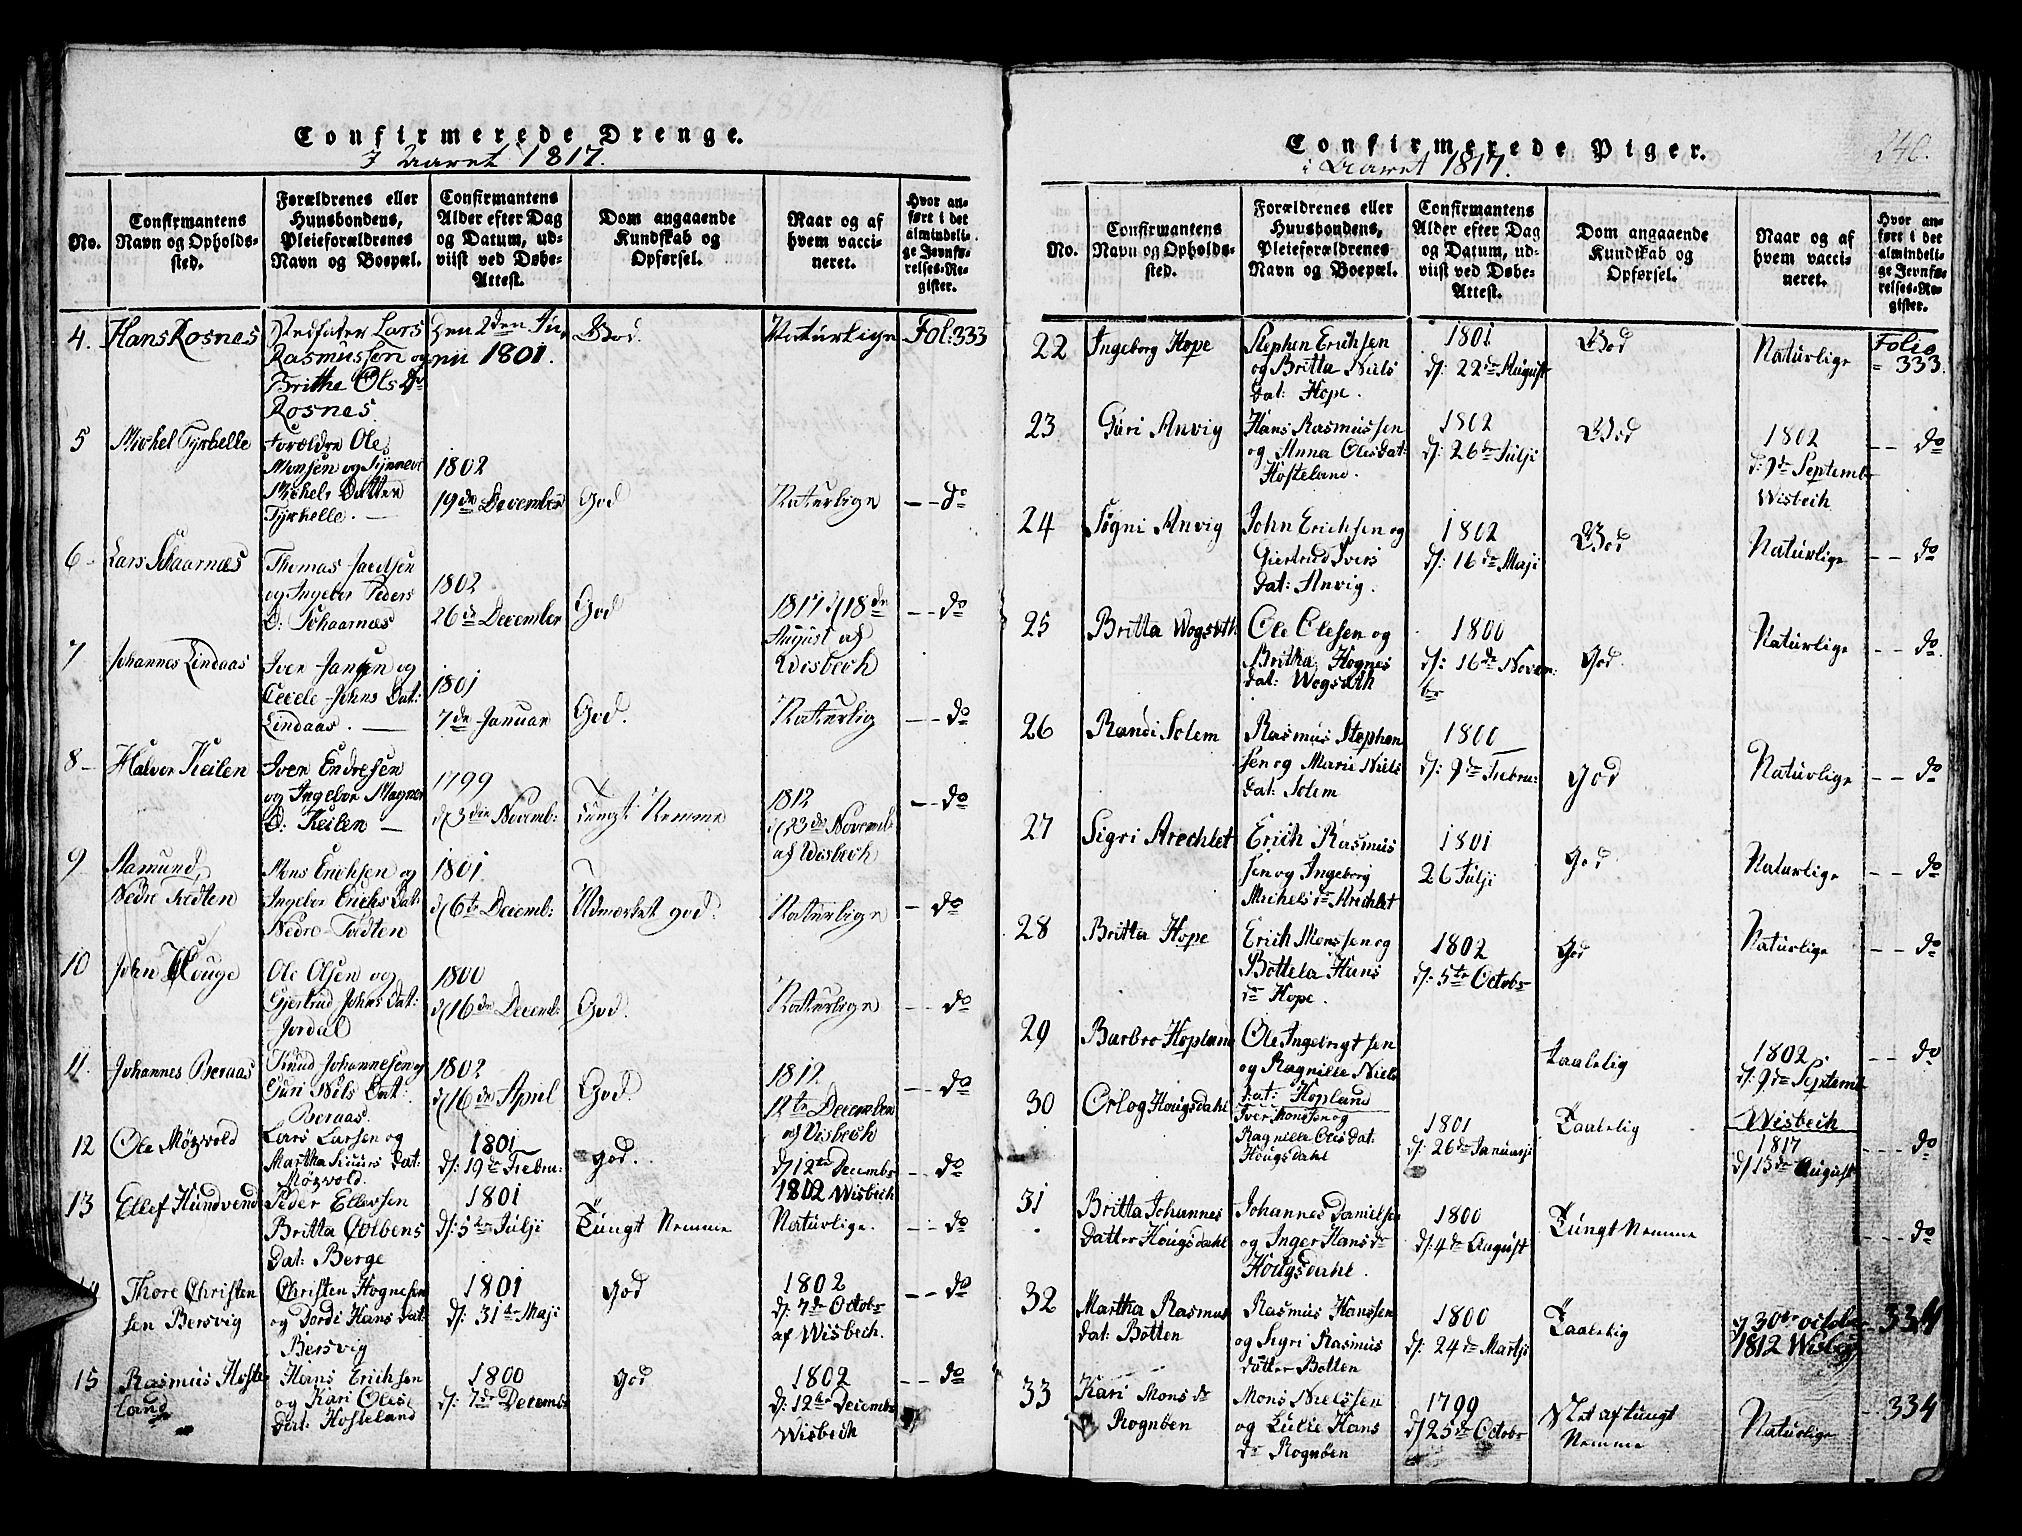 Confirmerede Drenge.
I Aaret 1817.
No.
Confirmantens
Navn og Opholds-
sted.
Forældrenes eller
Huusbondens,
Pleieforældrenes
Navn og Boepæl.
Confirmantens
Alder efter Dag
og Datum, ud-
viist ved Døbe-
Attest.
Dom angaaende
Kundskab og
Opførsel.
Naar og af
hvem vacci-
neret.
Hvor an-
ført i det
almindeli-
ge Jevnfø-
relses-Re-
gister.
4. Hans Rosnes
Stedfader Lars
Rasmussen og
Brithe Ols Dr
Rosnes
Den 2den Ju,
nii 1801.
God.
Naturlige
Fol: 333
5 Michel Tyrhelle
Forældre Ole
Monsen og Synnevi
Michels Datter
Tyrhelle.
1802
19de December
God
Naturlige
do
6 Lars Skaarnæs
Thomas
og Ingebor Peders
D: Schaarnæs
1802
26de December
God
1817 d/18de
August af
Wisbech
do
7 Johannes Lindaas
Iver Jansen og
Cecele Johns Dat:
Lindaas.
1801
7de Januar
God.
Naturlig
do
8 Halvor Keilen
Iver Endresen
og Ingebor Magne
D: Keilen
1799
d/3die Novemb:
Tungt Nemme
1812
d/23de Novemb:
af Wisbech
do
9 Aamund
Nedre Tvedten
Mons Erichsen og
Ingebor Erichs Dat
Nedre-Tvedten
1801.
d/6te Decemb:
Udmærket god.
Naturlige
do
10 John Houge
Ole Olsen og
Gjertrud Johns Dat:
Jordal
1800
d/16de Decemb:
God.
Naturlige
do
11. Johannes Beraas
Knud Johannesen og
Guri Nils Dat:
Beraas.
1802
d/16de April
God
1812
12te December
af Wisbech
do
12 Ole Møzvold
Lars Larsen og
Martha Dat:
Møzvold.
1801
d/: 19de Febru:
god.
d/12te Decembr
1802 Wisbech
do
13 Ellef Hundvend
Peder Ellevsen
Britta Colbens
Dat: Berge
1801
d/: 5te Julji
Tungt Nemme
Naturlige.
do
14 Thore Christen
sen Bersvig
Christen Hognesen
og Dordi Hans dat:
Bersvig
1801
d/: 31te Maji
god
1802
d/: 7de Octobr
af Wisbech.
do
15 Rasmus Hoste
land
Hans Erichsen
og Kari Oles
Dat: Hosteland
1800
d/: 7de Decembr
god
1802
d/: 12te Decembr
Wisbech
do
Confirmerede Piger.
i Aaret 1817.
240.
No.
Confirmantens
Navn og Opholds-
sted.
Forældrenes eller
Huusbondens,
Pleieforældrenes
Navn og Boepæl.
Confirmantens
Alder efter Dag
og Datum, ud-
viist ved Døbe-
Attest.
Dom angaaende
Kundskab og
Opførsel.
Naar og af
hvem vacci-
neret.
Hvor an-
ført i det
almindeli-
ge Jevnfø-
relses-Re-
gister.
22 Ingeborg Hope
Stephen Erichsen
og Britta Niels
dat: Hope.
1801
d/: 22de August
God
Naturlige
Folio
= 333.
23 Guri Anvig
Hans Rasmussen
og Anna Olesdat:
Hosteland.
1802
d/: 26de Julji
God
1802
d: 9de Septembr
Wisbech
do
24 Søgni Anvig
John Erichsen og
Giertrud Ivers
dat: Anvig.
1802
d/: 16de Maji
God
Naturlige
do
25 Britta Wogsøth
Ole Olesen og
Britha Hognes
dat: Wogsøth
1800
d/: 16de Novem-
br
God.
Naturlige
do
26 Randi Solem
Rasmus Stephen
sen og Marie Niels
dat: Solem
1800
d/: 9de Febru:
god
Naturlige
do
27 Sigri Arechlet
Erich Rasmus
sen og Ingeborg
Michelsdr Arechlet
1801
26 Julji
god
Naturlige
do
28 Britta Hope
Erich Monssen og
Bottela Hans
dr Hope.
1802
d/: 5te Octobr
god
Naturlige
do
29 Barbro Hopland
Ole Ingebrigtsen
og Ragnille Niels
dat: Hopland
Taalelig
1802.
d/: 9de Septembr
Wisbech
do
30 Orlog Hougsdahl
Iver Monsen og
Ragnille Olesdat:
Hougsdahl
1801
d/: 26de Januarji
Taalelig
1817
d/13de August
do
31 Britta Johannes
datter Hougsdahl
Johannes Danielsen
og Inger Hansdr
Hougsdahl.
1800
d/: 4de August
Tungt Nemme
do
32 Martha Rasmus
dat: Botten
Rasmus Hanssen
og Sygri Rasmus
datter Botten
1800
d/: 24de Martji
Taalelig
d/ 30te october
1812 Wisbech
334
33 Kari Monsdr
Rognøen
Mons Nielssen
og Lulie Hans
dr Rognøen
1799
d/25de Octobr
Slet af tungt
Nemme
Naturlige
334